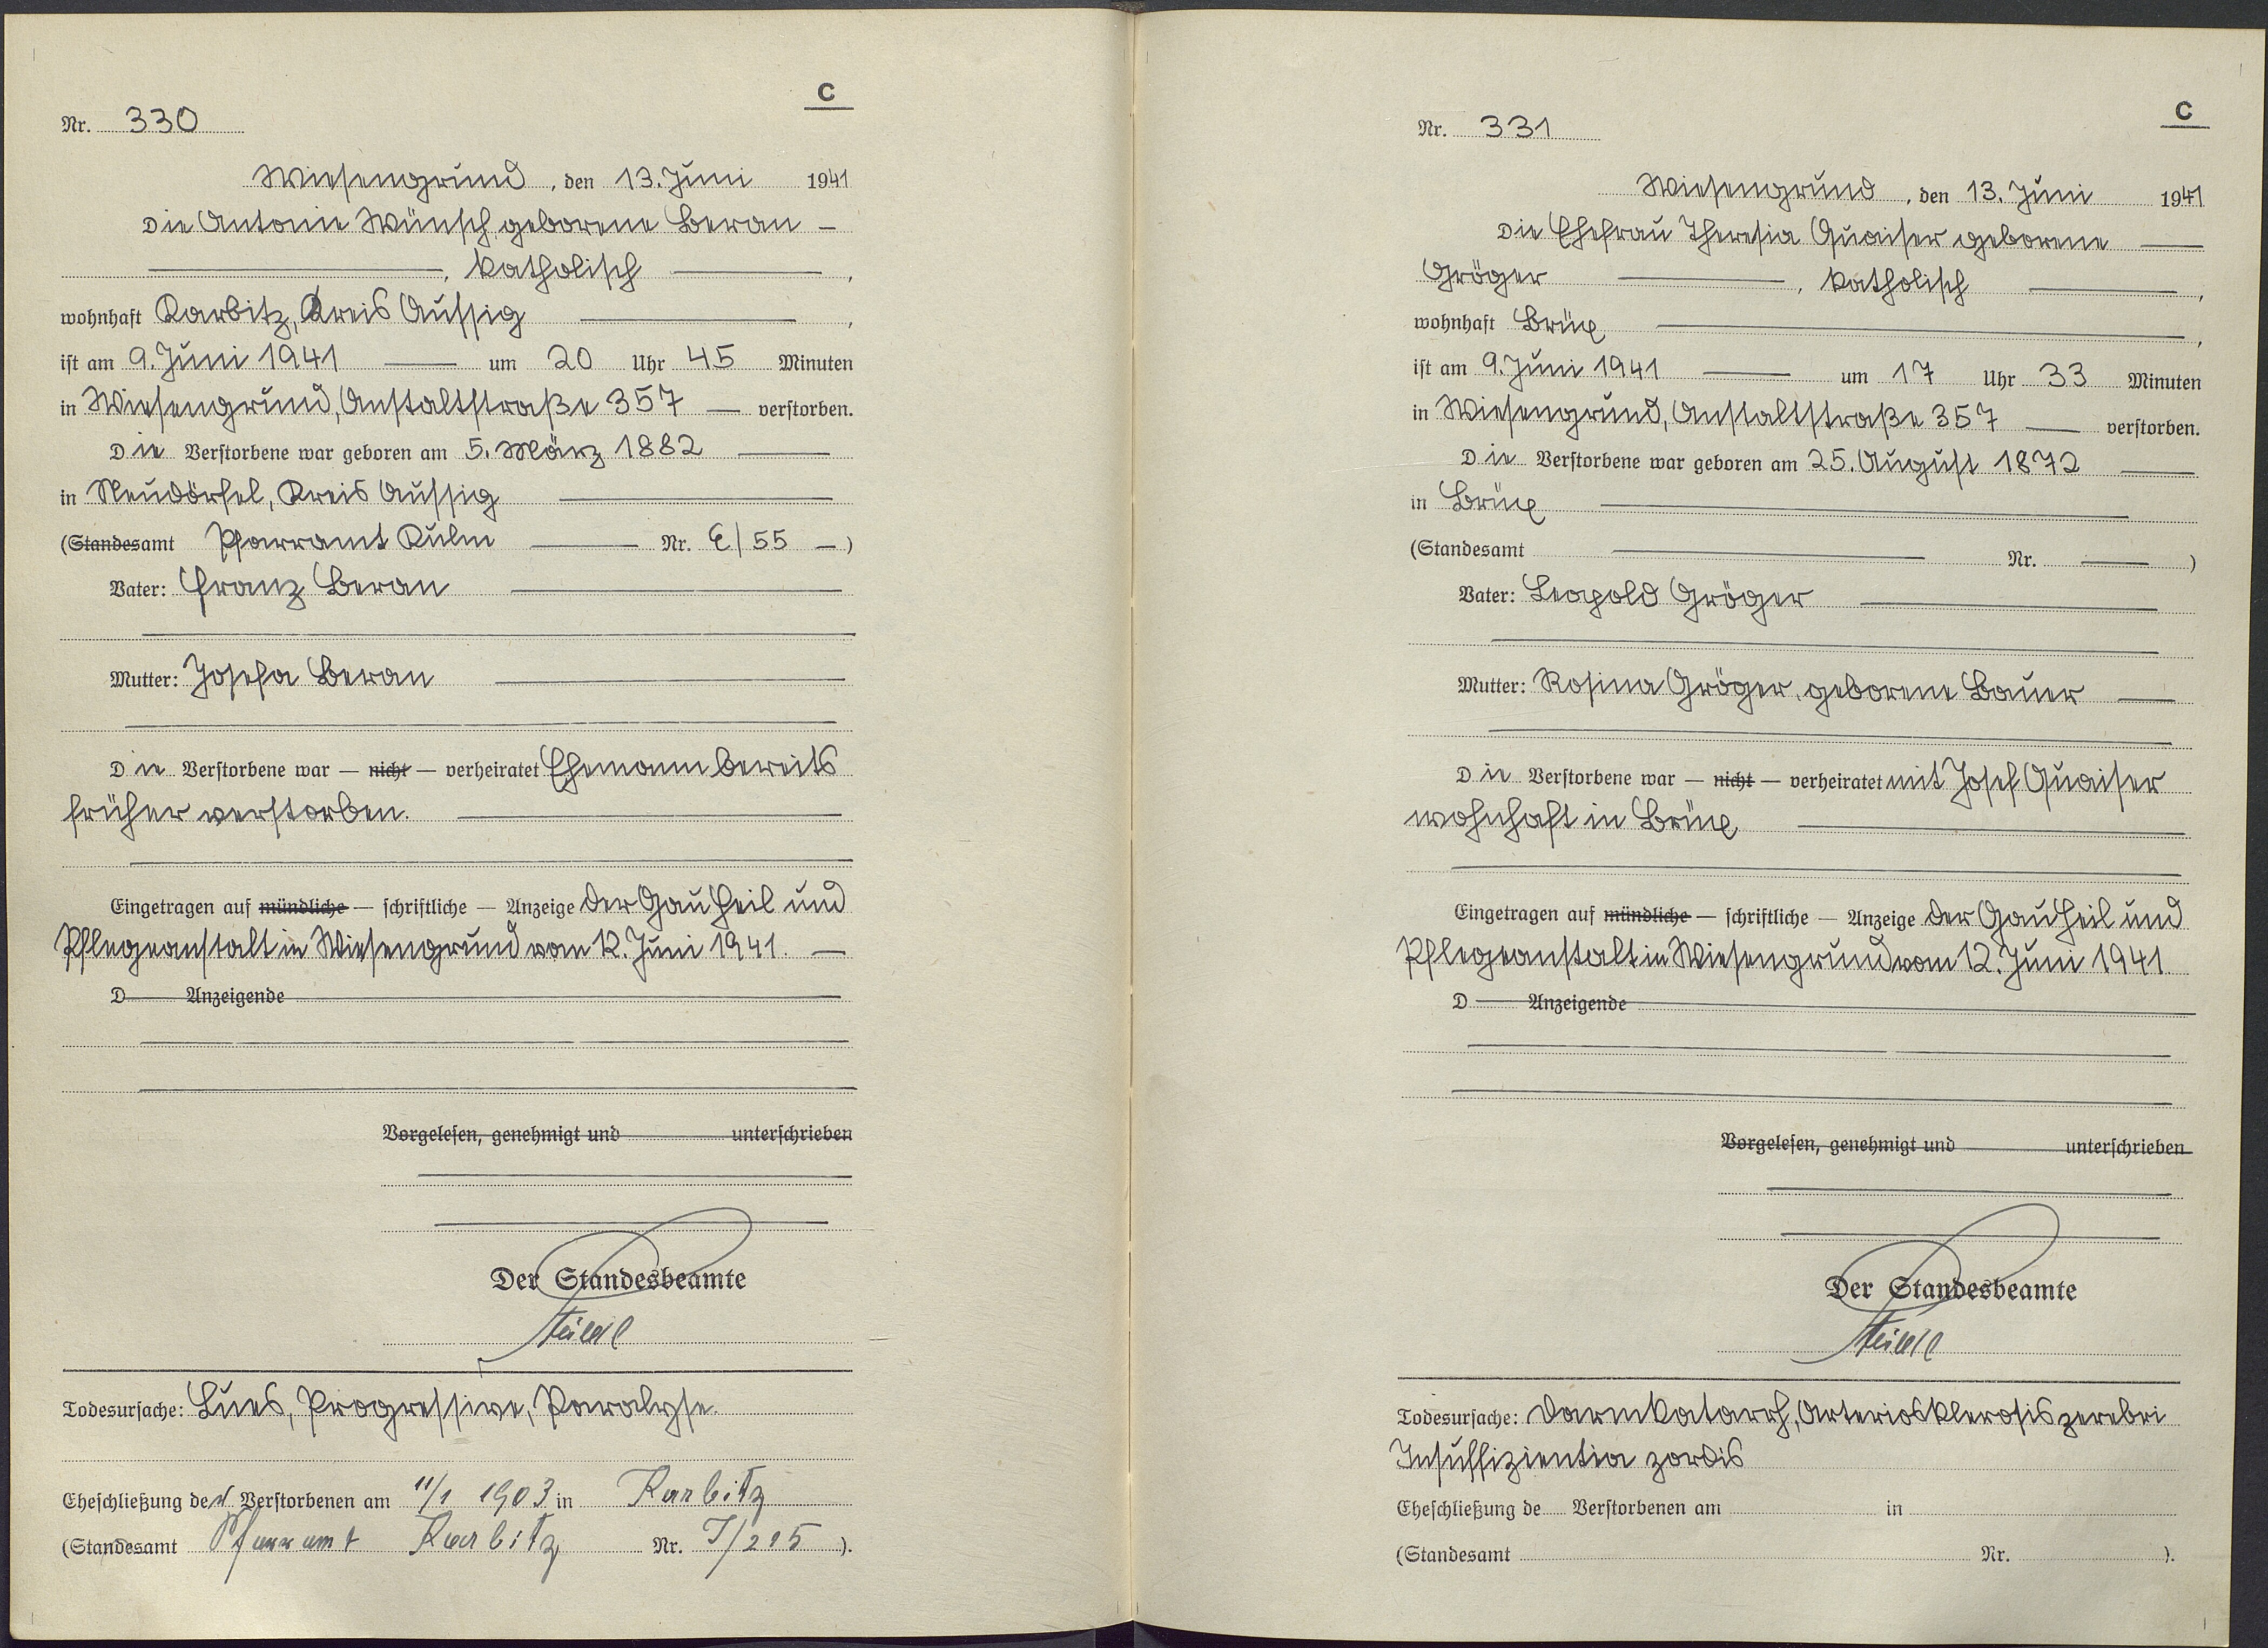 C
Nr. 330
Wiesengrund, den 13. Juni 1941
Die Antonie Wünsch geborene Beran —
—, katholisch —,
wohnhaft Karbitz, Kreis Aussig —,
ist am 9. Juni 1941 — um 20 Uhr 45 Minuten
in Wiesengrund, Anstaltstraße 357 — verstorben.
Die Verstorbene war geboren am 5. März 1882 —
in Neudörfel, Kreis Aussig —
(Standesamt Pfarramt Kulm — Nr. E/55 —)
Vater: Franz Beran —
Mutter: Josefa Beran —
Die Verstorbene war — nicht — verheiratet Ehemann bereits
früher verstorben. —
Eingetragen auf mündliche — schriftliche — Anzeige der Gau Heil und
Pflegeanstalt in Wiesengrund vom 12. Juni 1941. —
D Anzeigende
Vorgelesen, genehmigt und unterschrieben
Der Standesbeamte
Todesursache: Lues, Progressive, Paralyse.
Eheschließung der Verstorbenen am 11/1 1903 in Karbitz
(Standesamt Pfarramt Karbitz Nr. I/215).
C
Nr. 331
Wiesengrund, den 13. Juni 1941
Die Ehefrau Theresia Quaiser geborene —
Gröger —, katholisch —,
wohnhaft Brüx —,
ist am 9. Juni 1941 — um 17 Uhr 33 Minuten
in Wiesengrund, Anstaltstraße 357 — verstorben.
Die Verstorbene war geboren am 25. August 1872 —
in Brüx —
(Standesamt — Nr. —)
Vater: Leopold Gröger —
Mutter: Rosina Gröger, geborene Bauer —
Die Verstorbene war — nicht — verheiratet mit Josef Quaiser
wohnhaft in Brüx —
Eingetragen auf mündliche — schriftliche — Anzeige der Gau Heil und
Pflegeanstalt in Wiesengrund vom 12. Juni 1941
D Anzeigende
Vorgelesen, genehmigt und unterschrieben
Der Standesbeamte
Todesursache: Darmkatarrh, Arteriosklerosis zerebri
Insuffizientia zordis
Eheschließung de Verstorbenen am in
(Standesamt Nr. ).